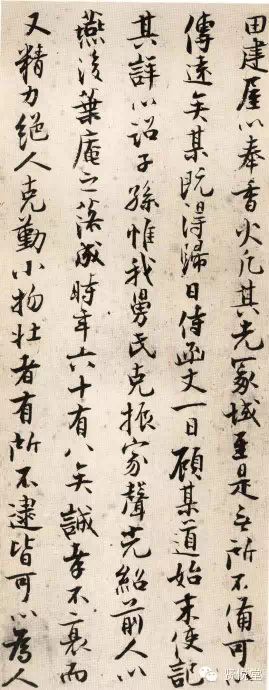 田建屋以奉香火凡其先冢域至是无所不備可
傳遠矣某既得歸日侍函丈一日顧某道始末使記
其詳以詔子孫惟我舅氏克振家聲光紹前人以
燕後葉庵之落成時年六十有八矣誠幸不衰而
又精力絕人克勤小物壯者有所不逮皆可以為人